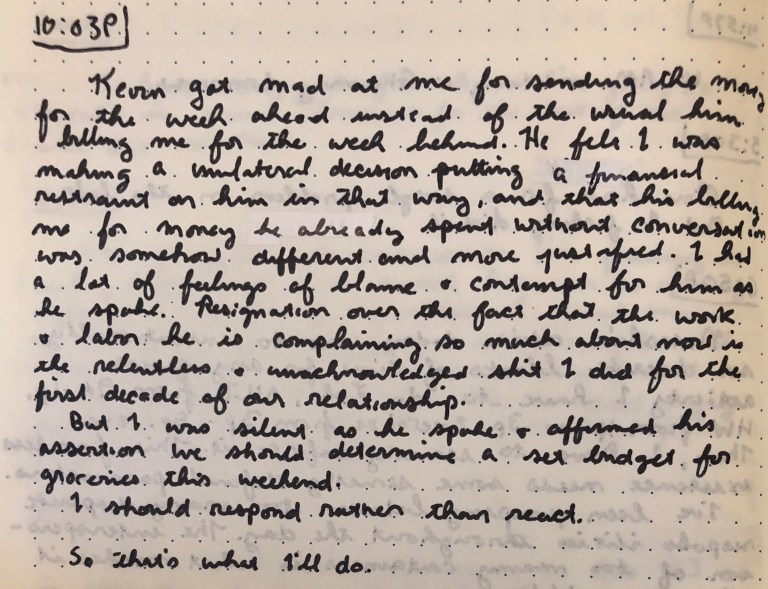 10:03P.
Kevin got mad at me for sending the money
for the week ahead instead of the usual him
billing me for the week behind. He fels I was
making a unilateral decision putting a financial
restraint on him in that way, and that his billing
me for money he already spent without conversation
was somehow different and more justified. I had
a lot of feelings of blame & contempt for him as
he spoke. Resignation over the fact that the work
& labor he is complaining so much about now is
the relentless & unacknowledged shit I did for the
first decade of our relationship.
But I was silent as he spoke & affirmed his
assertion we should determine a set budget for
groceries this weekend.
I should respond rather than react.
So that's what I'll do.